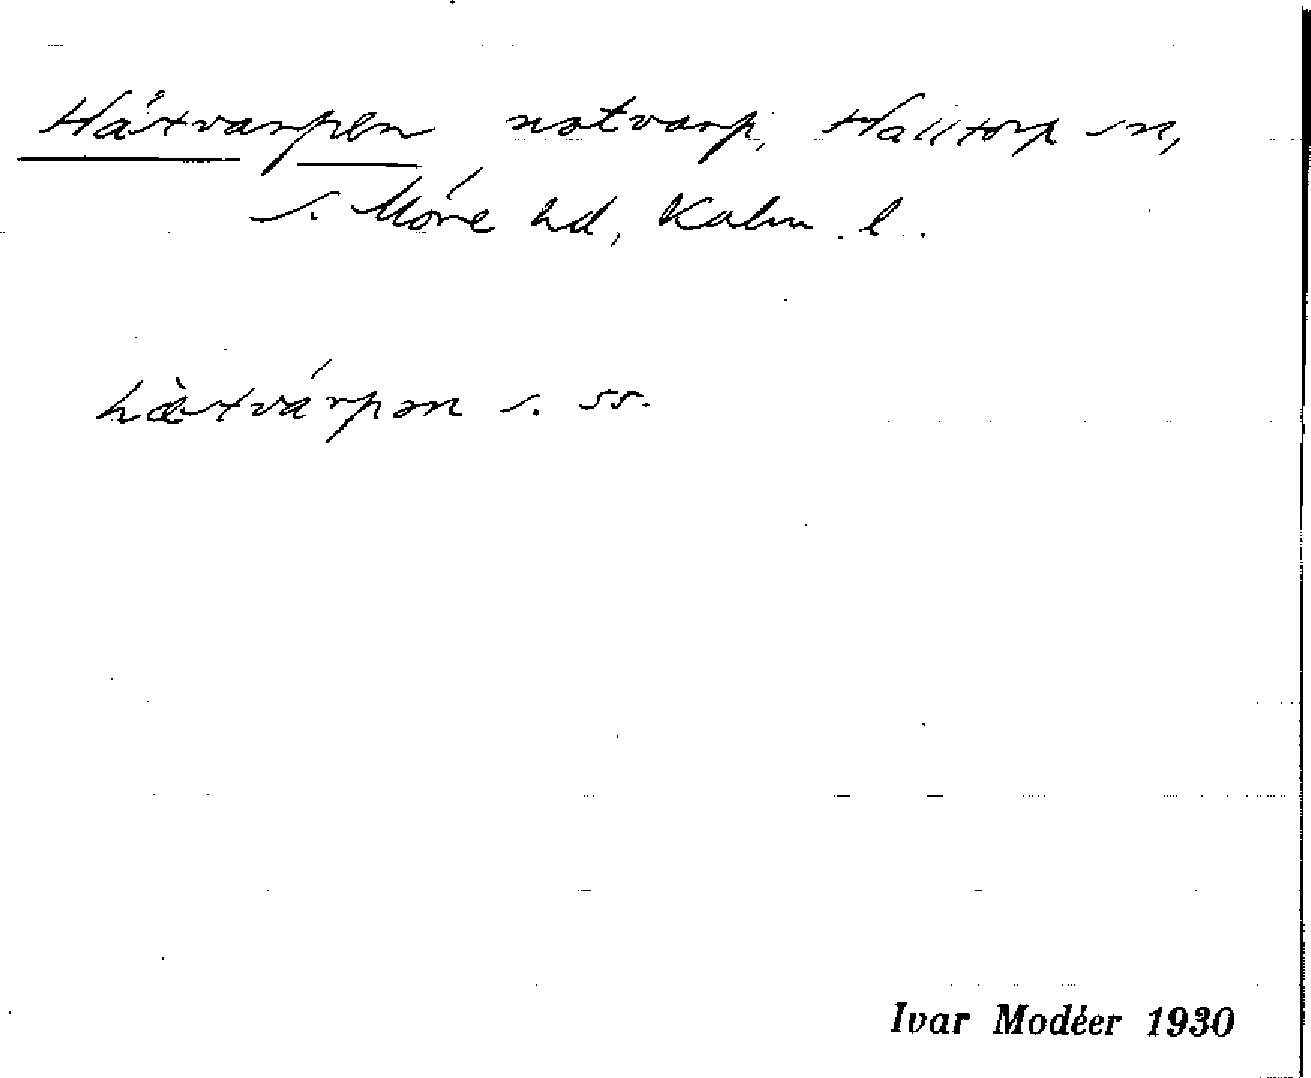 Hästvarpen notvarp, Halltorp sn,
S. Möre hd, Kalm. l.
hæ̀stvárpən s. ss.
Ivar Modéer 1930